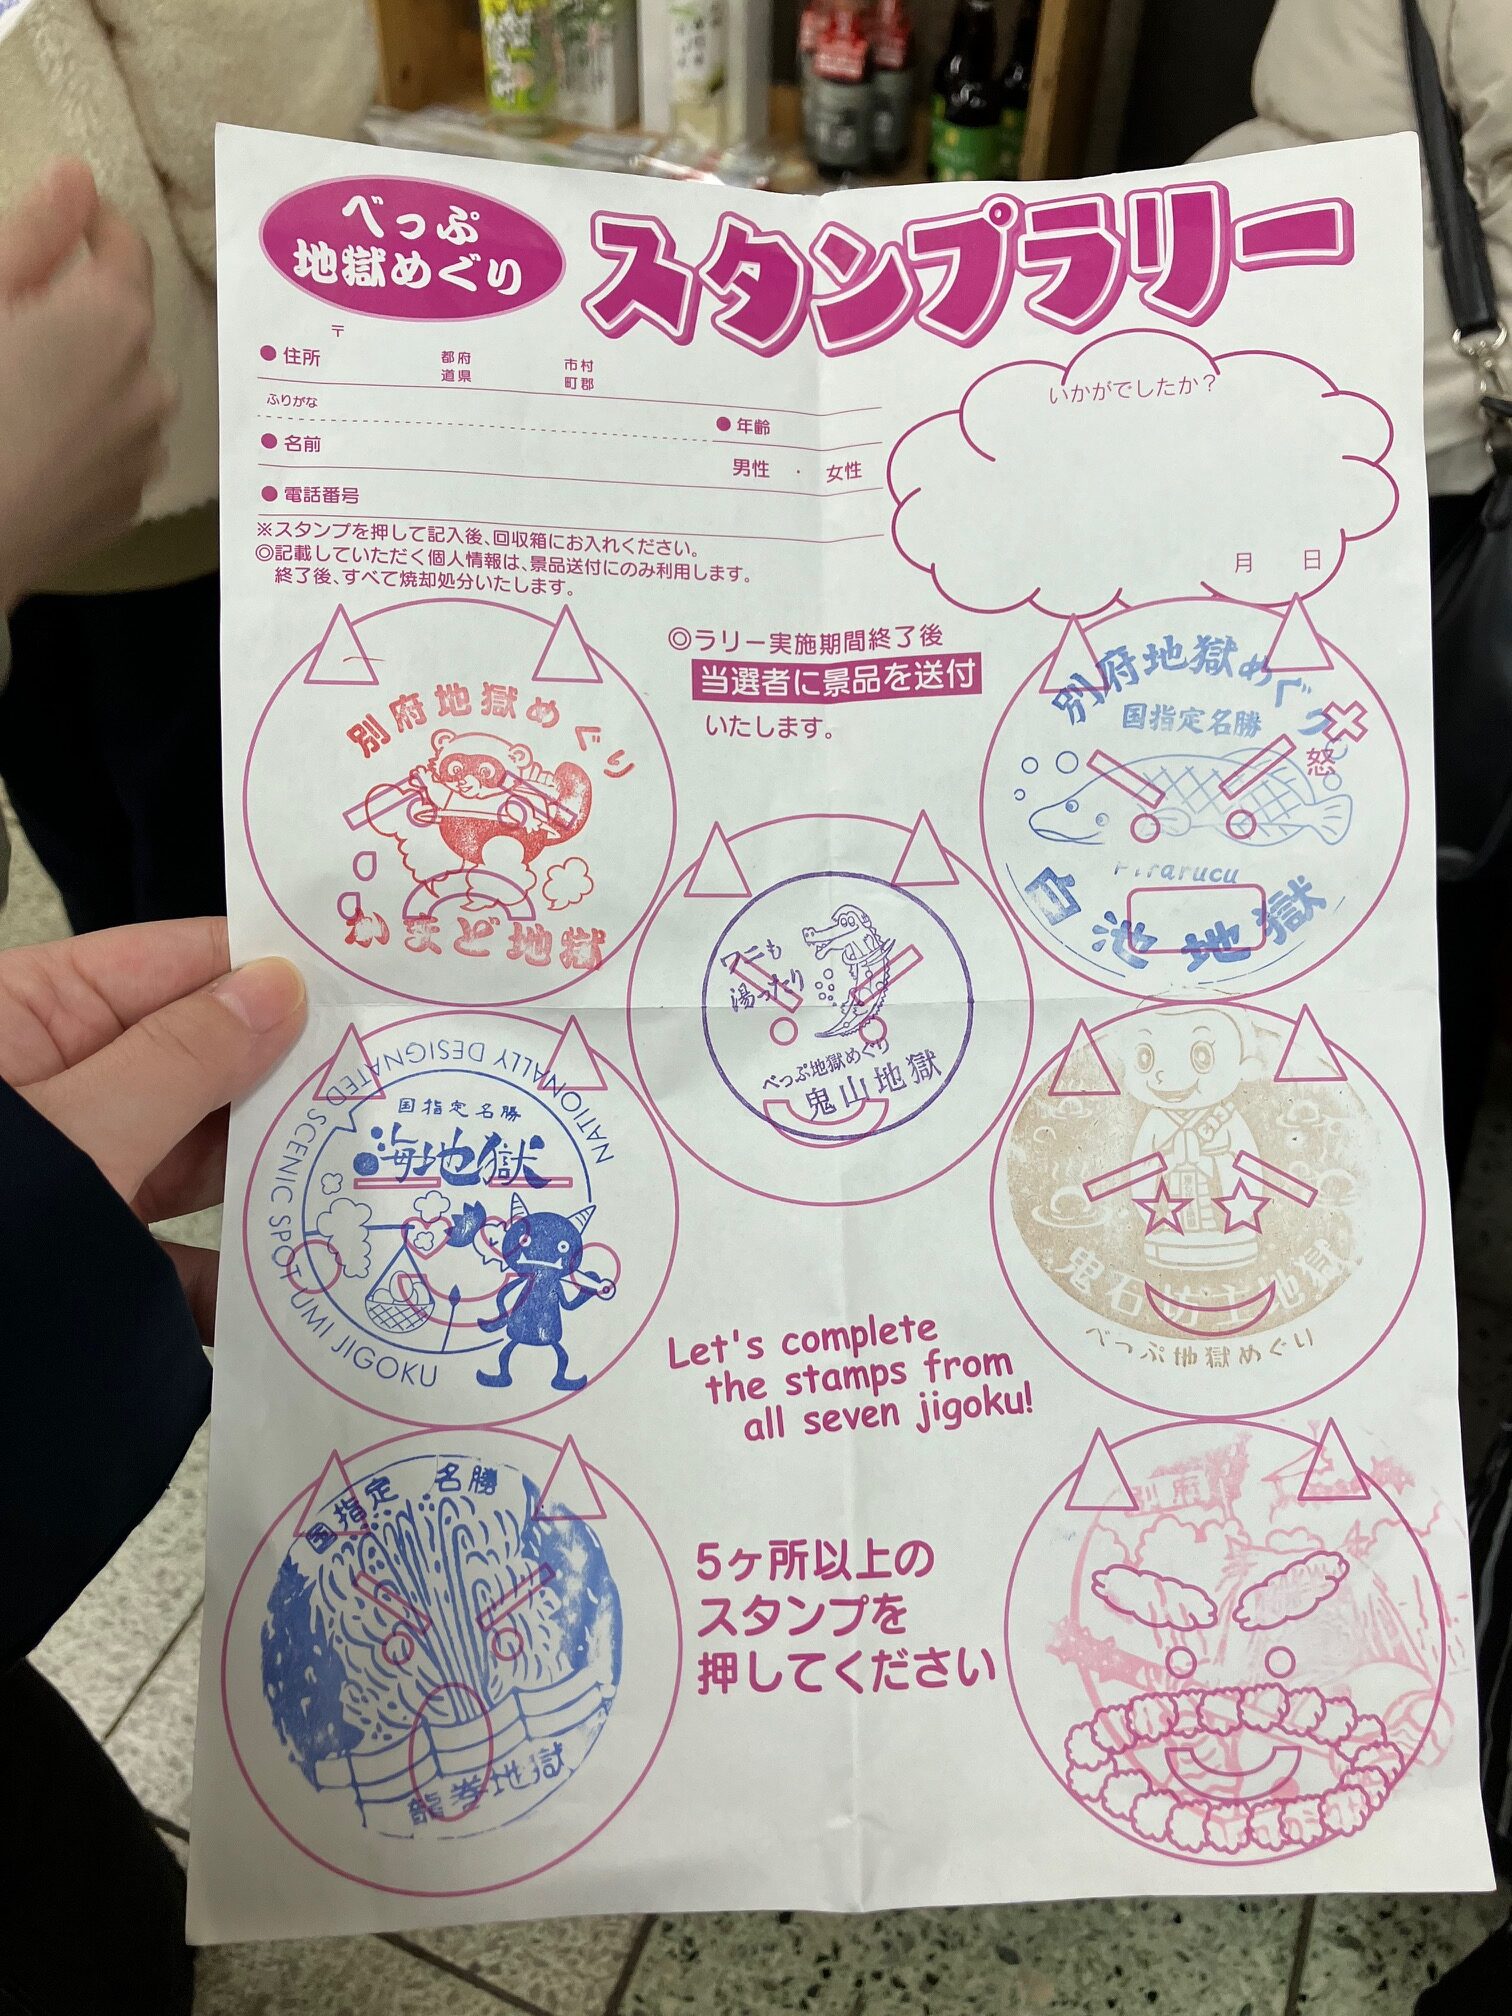 べっぷ
地獄めぐり
スタンプラリー
〒
●住所
都府
道県
市村
町郡
ふりがな
●名前
●年齢
男性 ・ 女性
●電話番号
※スタンプを押して記入後、回収箱にお入れください。
◎記載していただく個人情報は、景品送付にのみ利用します。
終了後、すべて焼却処分いたします。
いかがでしたか？
月 日
◎ラリー実施期間終了後
当選者に景品を送付
いたします。
別府地獄めぐり
かまど地獄
別府地獄めぐり
国指定名勝
怒
Pirarucu
白池地獄
ワニも
湯ったり
べっぷ地獄めぐり
鬼山地獄
NATIONALLY DESIGNATED SCENIC SPOT UMI JIGOKU
国指定名勝
海地獄
鬼石坊主地獄
べっぷ地獄めぐり
Let's complete
the stamps from
all seven jigoku!
国指定 名勝
龍巻地獄
5ヶ所以上の
スタンプを
押してください
別府